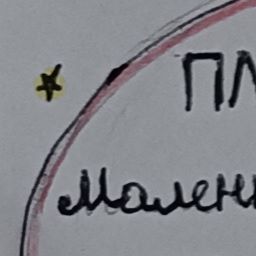 ПЛ
Мален